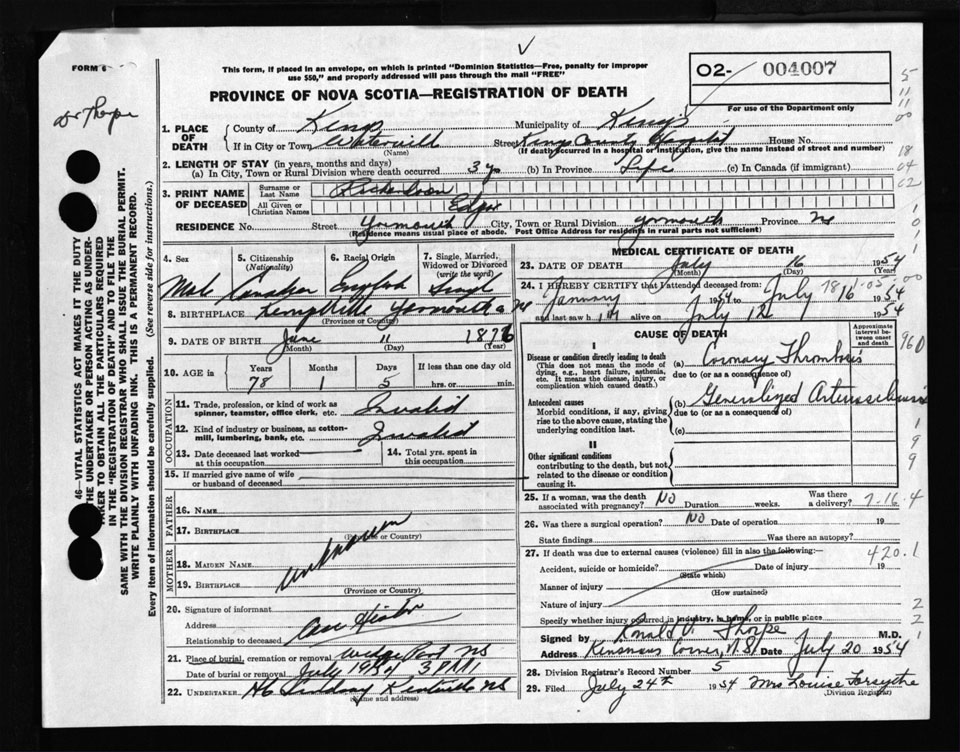 FORM 6
This form, if placed in an envelope, on which is printed "Dominion Statistics—Free, penalty for improper
use $50," and properly addressed will pass through the mail "FREE"
O2- 004007
For use of the Department only
PROVINCE OF NOVA SCOTIA—REGISTRATION OF DEATH
Dr Thorpe
1. PLACE OF DEATH
County of Kings Municipality of Kings
If in City or Town Waterville Street Kings County Hospital House No.
(Name) (If death occurred in a hospital or institution, give the name instead of street and number)
2. LENGTH OF STAY (in years, months and days)
(a) In City, Town or Rural Division where death occurred 3 y (b) In Province Life (c) In Canada (if immigrant)
3. PRINT NAME OF DECEASED
Surname or Last Name
All Given or Christian Names Edgar
RESIDENCE No. Street Yarmouth City, Town or Rural Division Yarmouth Province NS
(Residence means usual place of abode. Post Office Address for residents in rural parts not sufficient)
4. Sex Male
5. Citizenship (Nationality) Canadian
6. Racial Origin English
7. Single, Married, Widowed or Divorced (write the word) Single
8. BIRTHPLACE Kemptville Yarmouth Co NS
(Province or Country)
9. DATE OF BIRTH June 11 1876
(Month) (Day) (Year)
10. AGE in Years Months Days If less than one day old
78 1 5 hrs. or min.
OCCUPATION
11. Trade, profession, or kind of work as spinner, teamster, office clerk, etc. Invalid
12. Kind of industry or business, as cotton-mill, lumbering, bank, etc. Invalid
13. Date deceased last worked at this occupation
14. Total yrs. spent in this occupation
15. If married give name of wife or husband of deceased
FATHER
16. NAME
17. BIRTHPLACE
(Province or Country)
unknown
MOTHER
18. MAIDEN NAME
19. BIRTHPLACE
(Province or Country)
20. Signature of informant
Address Case History
Relationship to deceased
21. Place of burial, cremation or removal Wedge Port NS
Date of burial or removal July 1954 3 PM
22. UNDERTAKER Lindsay Kentville NS
(Name and address)
MEDICAL CERTIFICATE OF DEATH
23. DATE OF DEATH July 16 1954
(Month) (Day) (Year)
24. I HEREBY CERTIFY that I attended deceased from:
January 1954 to July 16 1954
and last saw him alive on July 12 1954
CAUSE OF DEATH
Approximate interval between onset and death
I
Disease or condition directly leading to death (a) Coronary Thrombosis
(This does not mean the mode of dying, e.g., heart failure, asthenia, etc. It means the disease, injury, or complication which caused death.)
due to (or as a consequence of)
Antecedent causes (b) Generalized Arteriosclerosis
Morbid conditions, if any, giving rise to the above cause, stating the underlying condition last.
due to (or as a consequence of)
(c)
II
Other significant conditions
contributing to the death, but not related to the disease or condition causing it.
25. If a woman, was the death associated with pregnancy? No Duration weeks. Was there a delivery? 7-16-4
26. Was there a surgical operation? No Date of operation 19
State findings Was there an autopsy?
27. If death was due to external causes (violence) fill in also the following:— 420.1
Accident, suicide or homicide? Date of injury 19
(State which)
Manner of injury
(How sustained)
Nature of injury
Specify whether injury occurred in industry, in home, or in public place
Signed by Ronald V. Thorpe M.D.
Address Kinsmans Corner, N.S. Date July 20 1954
28. Division Registrar's Record Number 5
29. Filed July 24th 1954 Mrs Louise Forsythe
(Division Registrar)
46—VITAL STATISTICS ACT MAKES IT THE DUTY
THE UNDERTAKER OR PERSON ACTING AS UNDER-
TAKER TO OBTAIN ALL THE PARTICULARS REQUIRED
IN THE "REGISTRATION OF DEATH" AND TO FILE THE
SAME WITH THE DIVISION REGISTRAR WHO SHALL ISSUE THE BURIAL PERMIT.
WRITE PLAINLY WITH UNFADING INK. THIS IS A PERMANENT RECORD.
Every item of information should be carefully supplied. (See reverse side for instructions.)